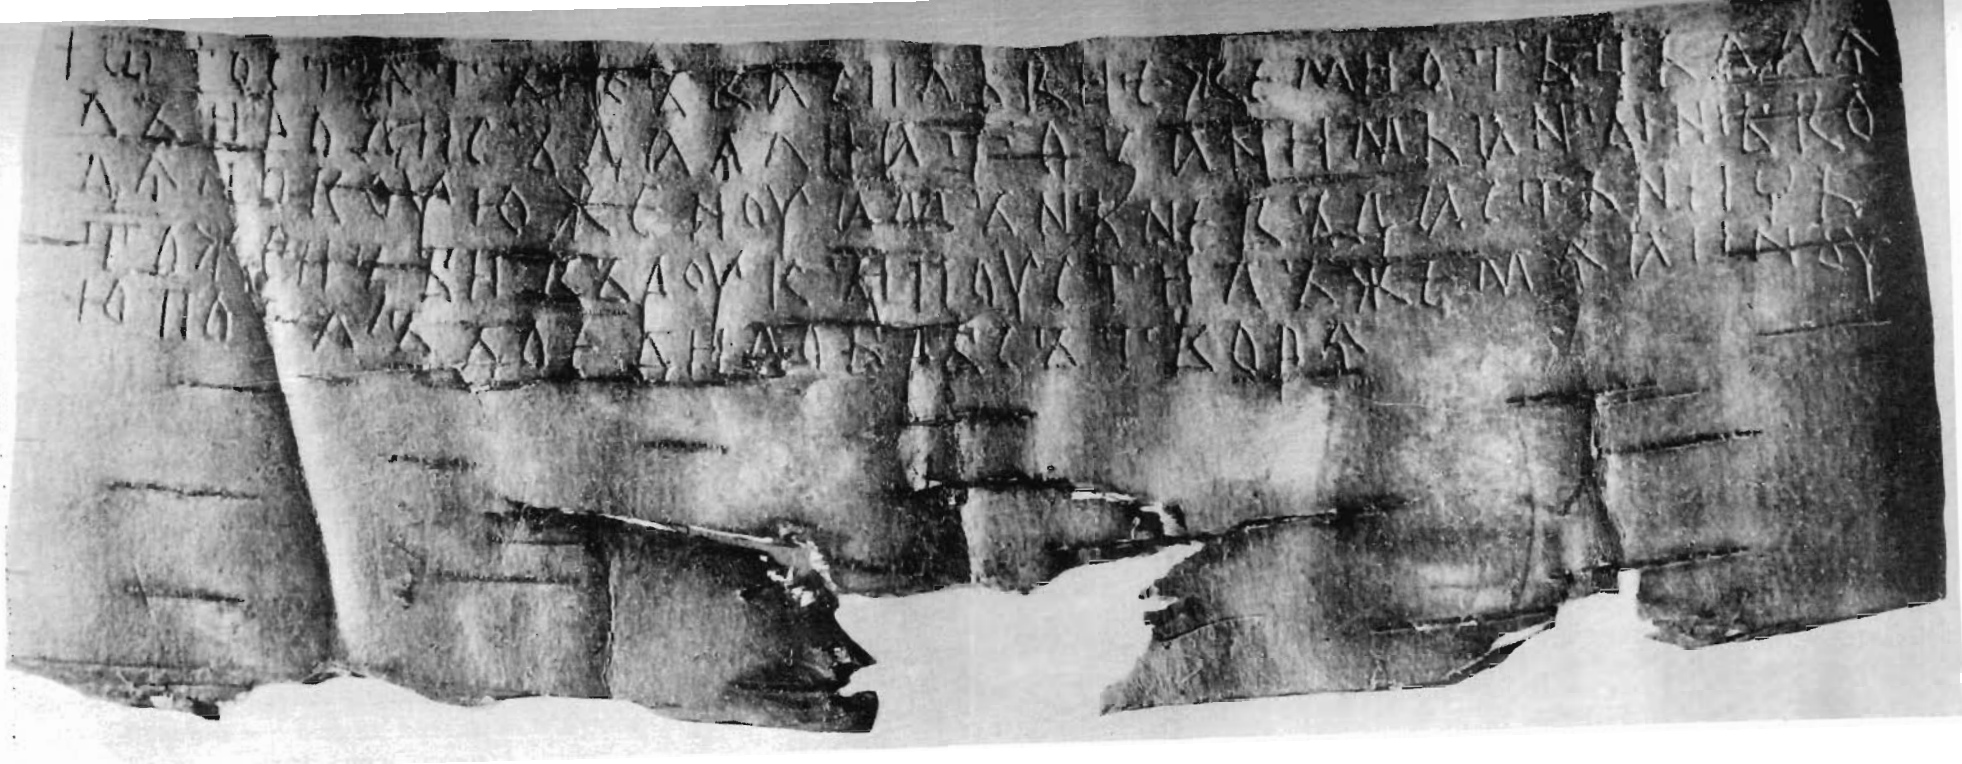 + ѿ гостѧты къ васильви ѥже ми отьць даѧ
лъ и роди съдаѧли а то за нимь а нынѣ во
дѧ новоую женоу а мънѣ не въдасть ничь
тоже избивъ роукы поустилъ же мѧ а иноу
ю поѧлъ доеди добрѣ сътворѧ